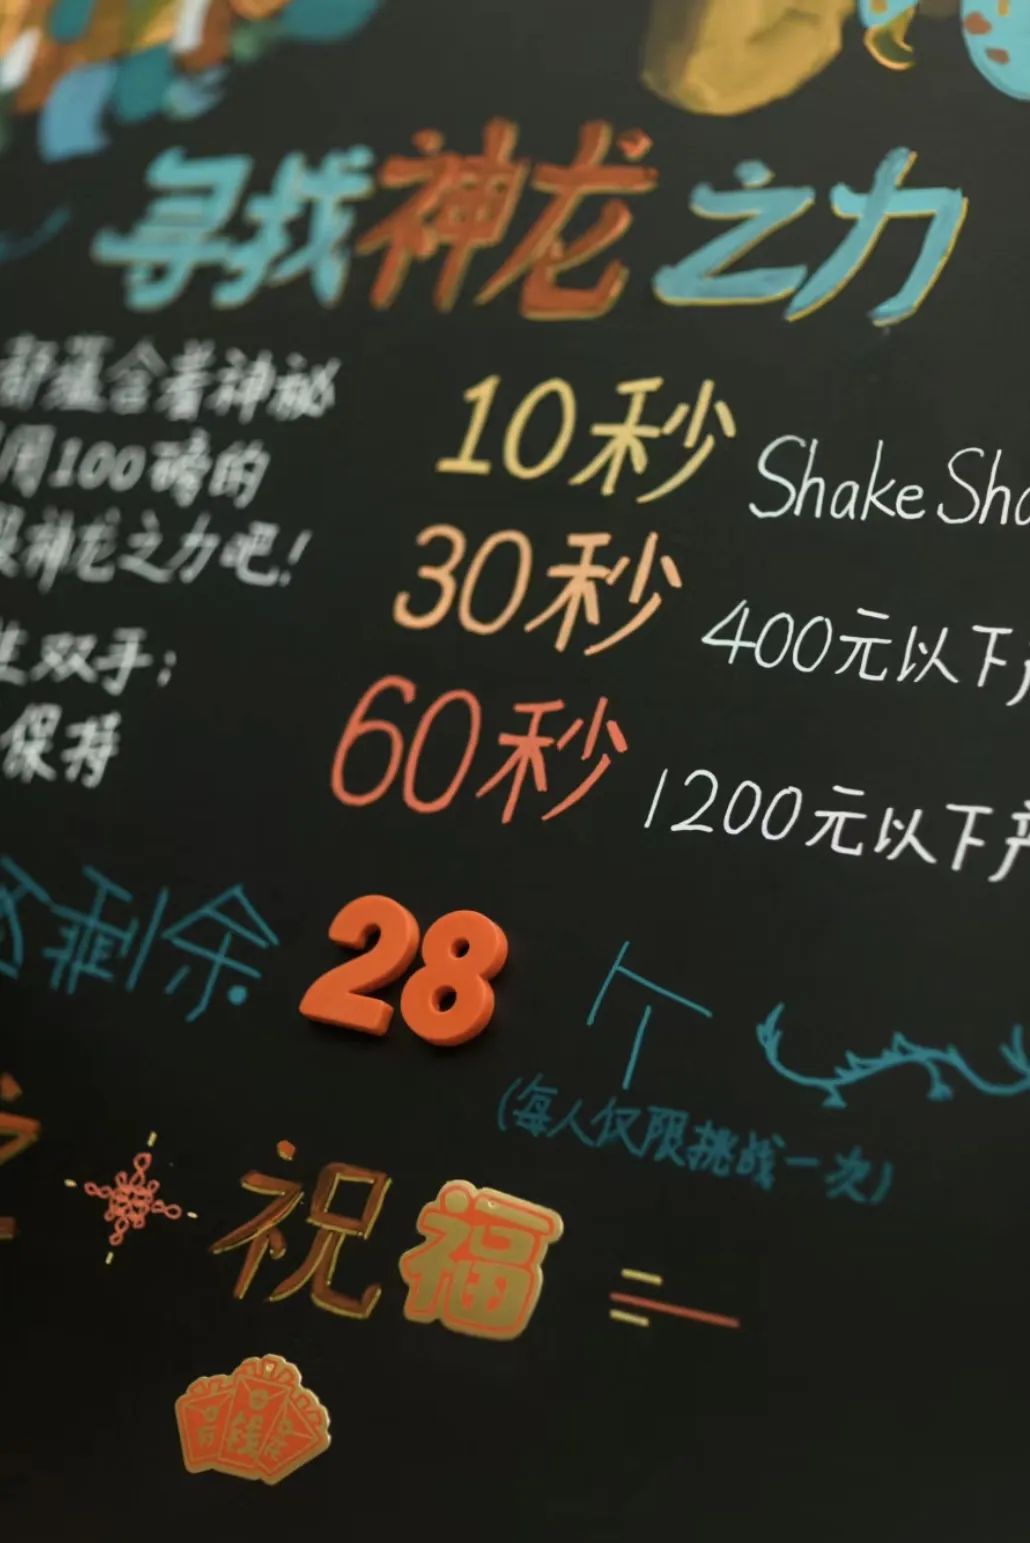 寻找神龙之力
都蕴含着神秘
用100磅的
神龙之力吧!
双手;
保持
10秒 Shake Sha
30秒 400元以下产
60秒 1200元以下产
剩余 28 个
(每人仅限挑战一次)
祝福